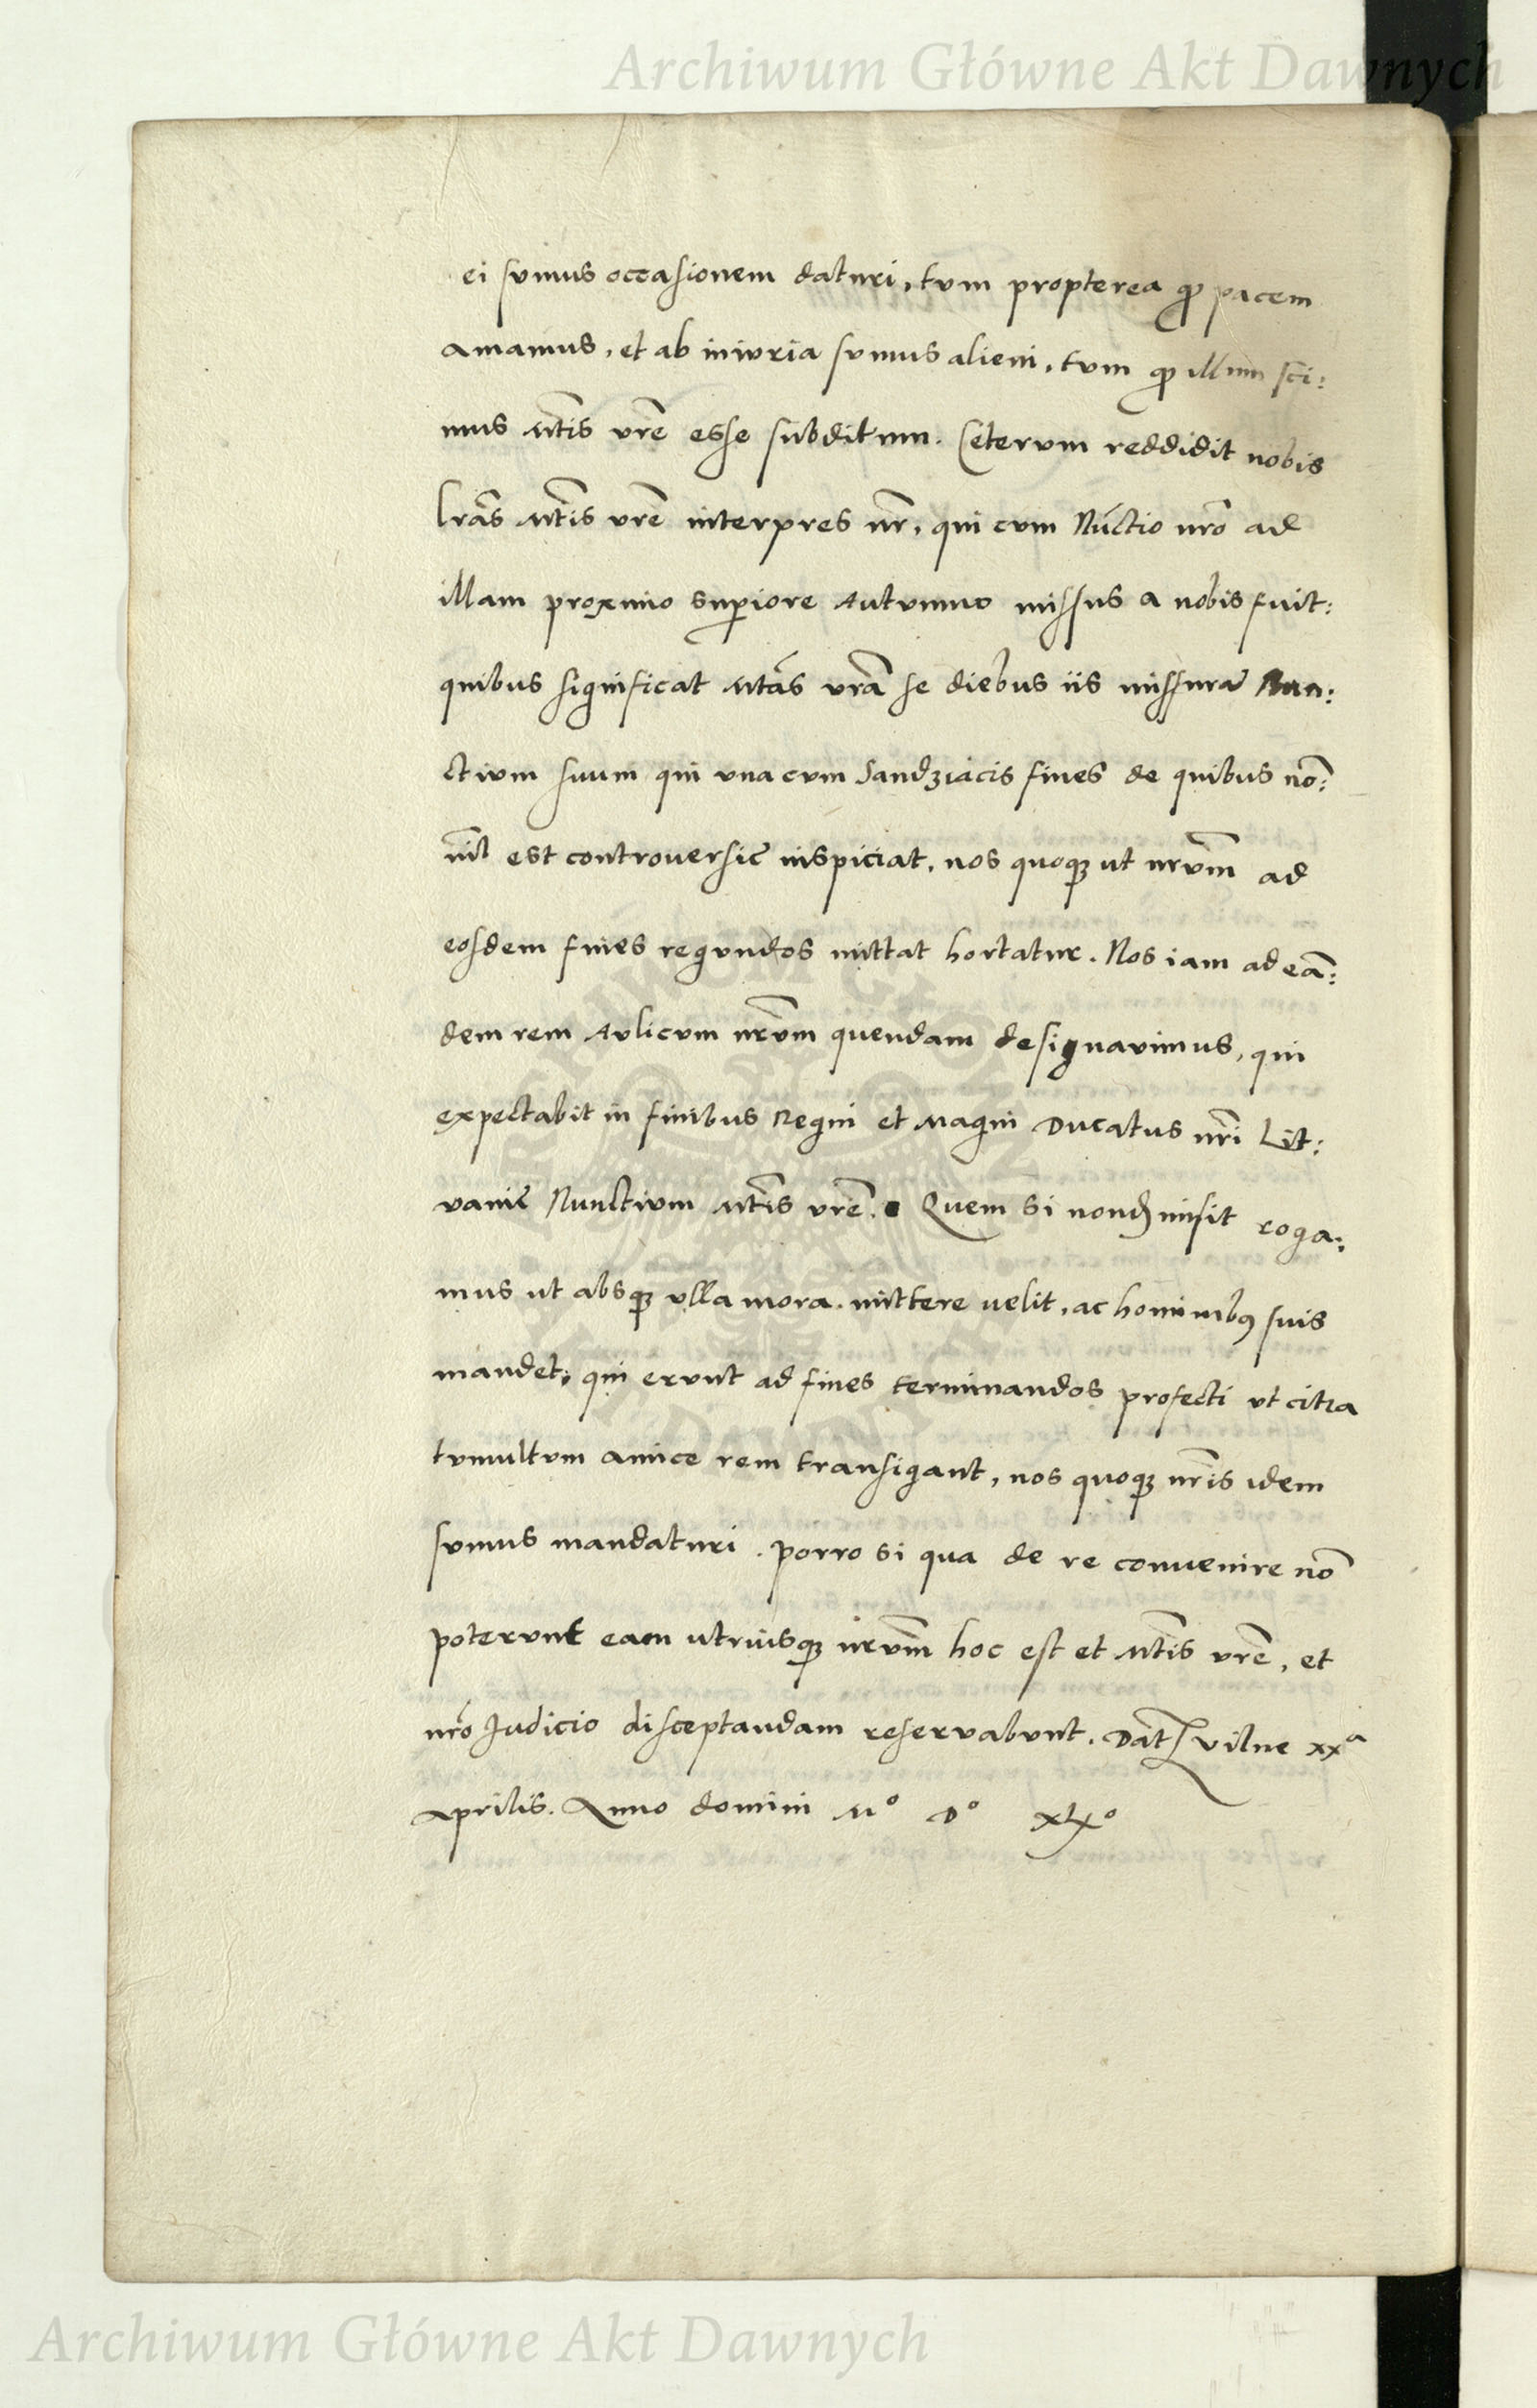 Archiwum Główne Akt Dawnych
ei sumus occasionem daturi, tum propterea qꝫ pacem
amamus, et ab iniuria sumus alieni, tum qꝫ illum sci:
mus Mtis vrẽ esse subditum. Ceterum reddidit nobis
lrãs Mtis vrẽ interpres nr̃, qui cum Nũctio nrõ ad
illam proximo suꝑiore Autumno missus a nobis fuit:
quibus significat Mtãs vrã se diebus iis missurã Nun:
ctium suum qui una cum Sandziacis fines de quibus nõ:
nil est controuersię inspiciat, nos quoqꝫ ut nrũm ad
eosdem fines regundos mittat hortatur. Nos iam ad eã:
dem rem Aulicum nrũm quendam designavimus, qui
expectabit in finibus Regni et Magni Ducatus nrĩ Lit:
vanię Nunctium Mtis vrẽ. Quem si nondũ misit roga:
mus ut absqꝫ ulla mora mittere velit, ac hominibꝰ suis
mandet, qui erunt ad fines terminandos profecti ut citra
tumultum amice rem transigant, nos quoqꝫ nrĩs idem
sumus mandaturi. Porro si qua de re convenire nõ
poterunt eam utriusqꝫ nrũm hoc est et Mtis vrẽ, et
nrõ Judicio disceptandam reservabunt. Dat̃ Vilne xxᵃ
Aprilis. Anno domini Mº Dº xlxº
Archiwum Główne Akt Dawnych